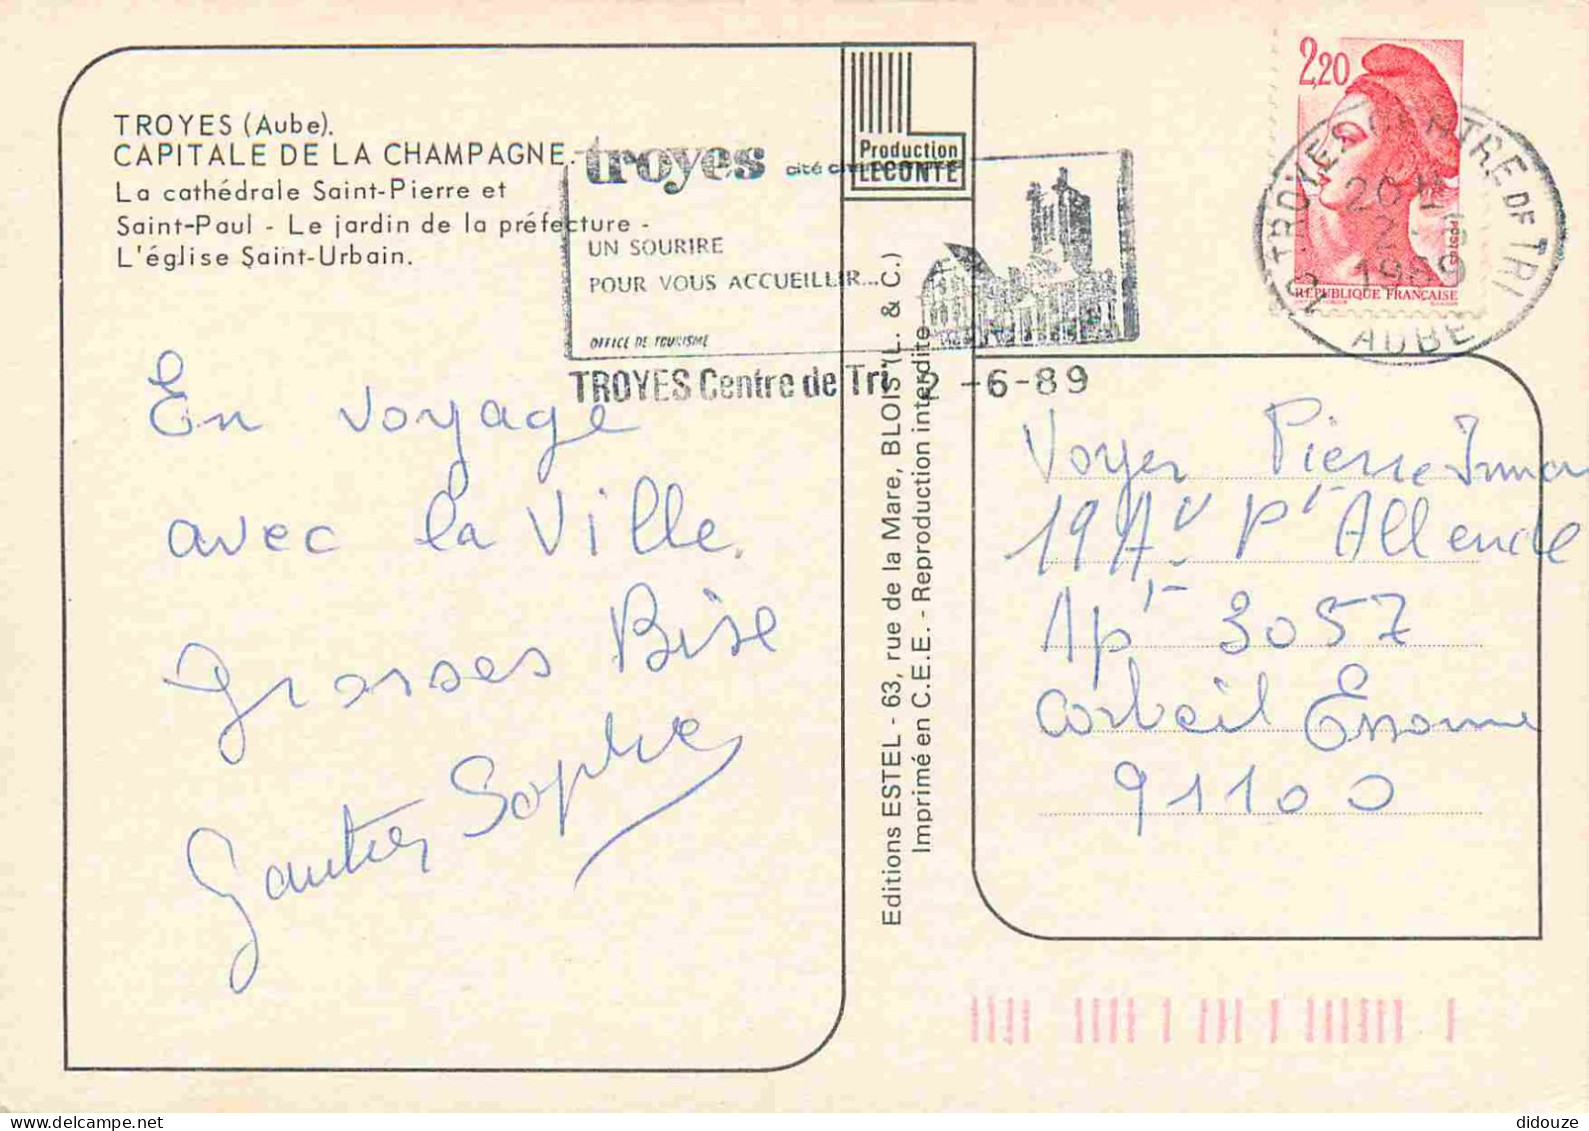 TROYES (Aube).
CAPITALE DE LA CHAMPAGNE.
La cathédrale Saint-Pierre et
Saint-Paul - Le jardin de la préfecture -
L'église Saint-Urbain.
troyes
UN SOURIRE
POUR VOUS ACCUEILLIR...
OFFICE DE TOURISME
TROYES Centre de Tri 2 -6-89
Production
LECONTE
2,20
POSTES
REPUBLIQUE FRANÇAISE
TROYES CENTRE DE TRI
20 H
1989
AUBE
En voyage
avec la Ville.
grosses Bise
Sophie
Editions ESTEL - 63, rue de la Mare, BLOIS (L. & C.)
Imprimé en C.E.E. - Reproduction interdite
Voyer Pierre
19 Av Pt Allende
Apt 3057
Corbeil Essonne
91100
didouze